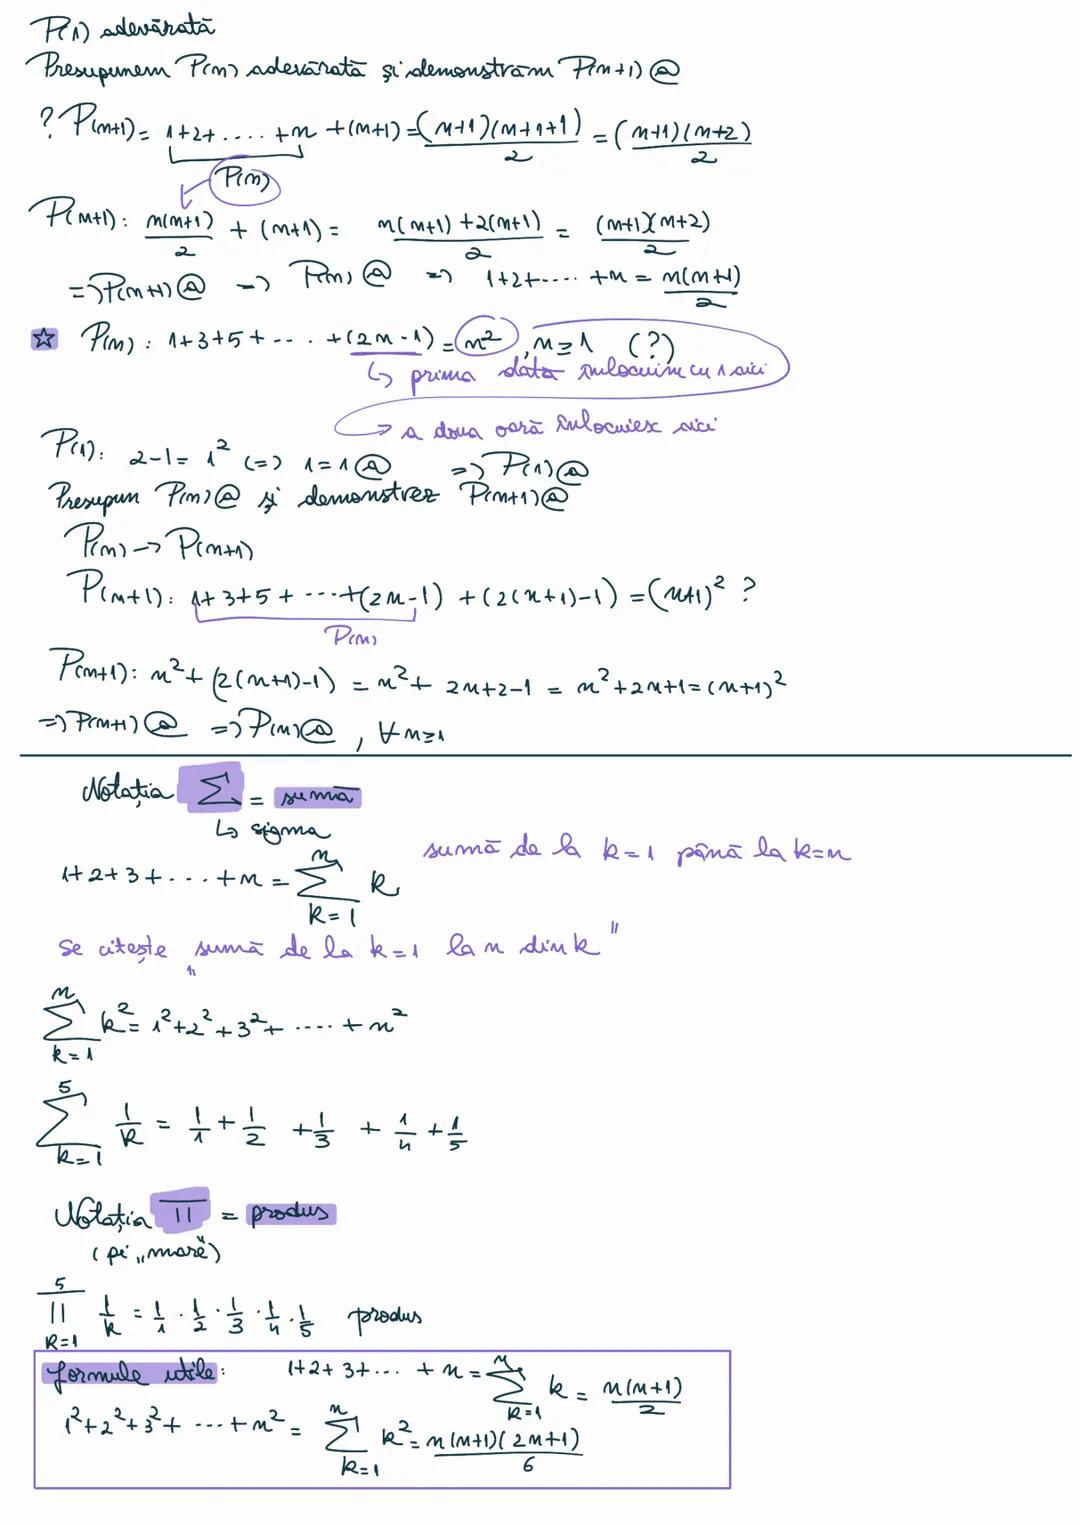 P(1) adevărată
Presupunem P(n) adevărată și demonstrăm P(n+1) Ⓐ
? P(n+1) = 1+2+....+n +(n+1) = (n+1)(n+1+1)/2 = (n+1)(n+2)/2
P(n)
P(n+1): n(n+1)/2 + (n+1) = n(n+1)+2(n+1)/2 = (n+1)(n+2)/2
=> P(n+1) Ⓐ => P(n) Ⓐ => 1+2+....+n = n(n+1)/2
☆ P(n): 1+3+5+...+(2n-1) = n², n≥1 (?)
↳ prima data înlocuim cu 1 aici
→ a doua oară înlocuiesc aici
P(1): 2-1 = 1² (=) 1=1 Ⓐ => P(1) Ⓐ
Presupun P(n) Ⓐ și demonstrez P(n+1) Ⓐ
P(n) → P(n+1)
P(n+1): 1+3+5+...+(2n-1)+(2(n+1)-1) = (n+1)² ?
P(n)
P(n+1): n²+(2(n+1)-1) = n²+2n+2-1 = n²+2n+1 = (n+1)²
=> P(n+1) Ⓐ => P(n) Ⓐ, ∀n≥1
Notația Σ = sumă
↳ sigma
sumă de la k=1 până la k=n
1+2+3+...+n = Σ_{k=1}^{n} k
Se citește „sumă de la k=1 la n din k"
Σ_{k=1}^{n} k² = 1²+2²+3²+....+n²
Σ_{k=1}^{5} 1/k = 1/1 + 1/2 + 1/3 + 1/4 + 1/5
Notația Π = produs
(pi „mare")
Π_{k=1}^{5} 1/k = 1/1 · 1/2 · 1/3 · 1/4 · 1/5 produs
formule utile: 1+2+3+...+n = Σ_{k=1}^{n} k = n(n+1)/2
1²+2²+3²+...+n² = Σ_{k=1}^{n} k² = n(n+1)(2n+1)/6